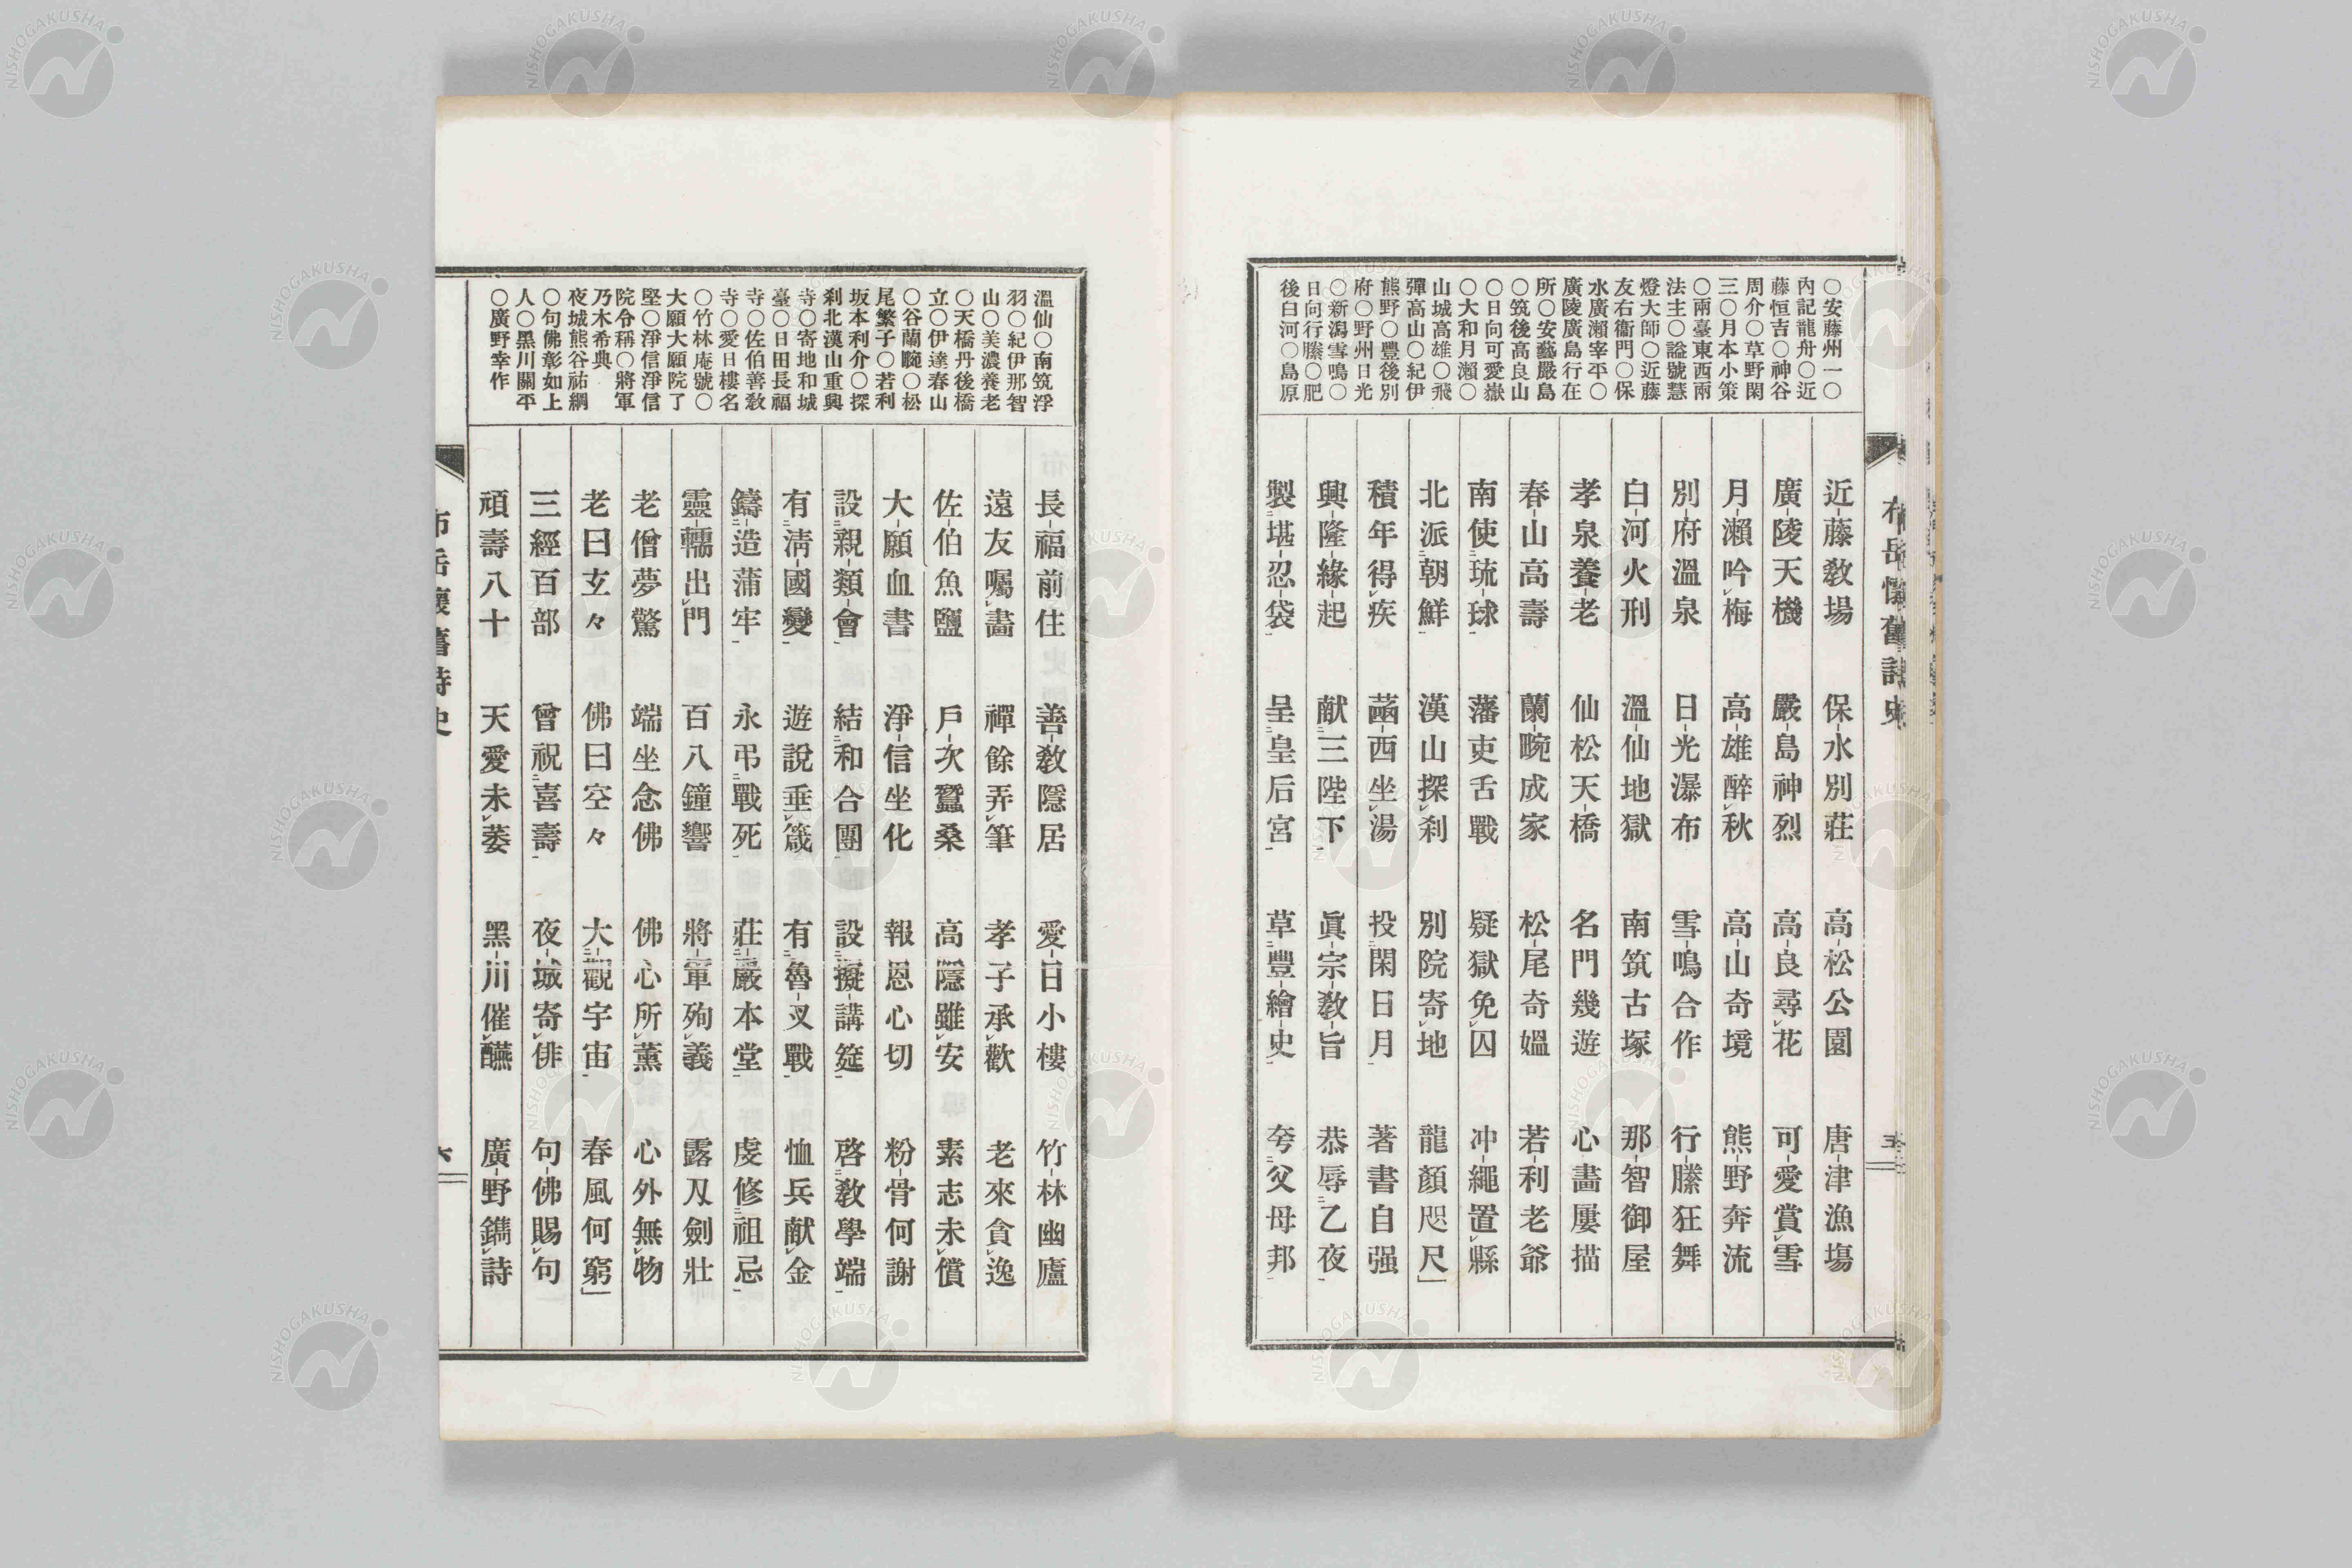 布岳懷舊詩史
五
○安藤州一○
內記龍舟○近
藤恒吉○神谷
周介○草野閑
三○月本小策
○兩臺東西兩
法主○謚號慧
燈大師○近藤
友右衞門○保
水廣瀨宰平○
廣陵廣島行在
所○安藝嚴島
○筑後高良山
○日向可愛嶽
○大和月瀨○
山城高雄○飛
彈高山○紀伊
熊野○豐後別
府○野州日光
○新潟雪鳴○
日向行縢○肥
後白河○島原
近藤敎場 保水別莊 高松公園 唐津漁塲
廣陵天機 嚴島神烈 高良尋花 可愛賞雪
月瀨吟梅 高雄醉秋 高山奇境 熊野奔流
別府溫泉 日光瀑布 雪鳴合作 行縢狂舞
白河火刑 溫仙地獄 南筑古塚 那智御屋
孝泉養老 仙松天橋 名門幾遊 心畵屢描
春山高壽 蘭畹成家 松尾奇媼 若利老爺
南使琉球 藩吏舌戰 疑獄免囚 冲繩置縣
北派朝鮮 漢山探刹 別院寄地 龍顏咫尺」
積年得疾 菡西坐湯 投閑日月 著書自强
興隆緣起 献三陛下 眞宗敎旨 恭辱乙夜
製堪忍袋 呈皇后宮 草豐繪史 夸父母邦
溫仙○南筑浮
羽○紀伊那智
山○美濃養老
○天橋丹後橋
立○伊達春山
○谷蘭畹○松
尾繁子○若利
坂本利介○探
刹北漢山重興
寺○寄地和城
臺○日田長福
寺○佐伯善敎
寺○愛日樓名
○竹林庵號○
大願大願院了
堅○淨信淨信
院令稱○將軍
乃木希典
夜城熊谷祐綱
○句佛彰如上
人○黑川關平
○廣野幸作
長福前住 善敎隱居 愛日小樓 竹林幽廬
遠友囑畵 禪餘弄筆 孝子承歡 老來貪逸
佐伯魚鹽 戶次蠶桑 高隱雖安 素志未償
大願血書 淨信坐化 報恩心切 粉骨何謝
設親類會 結和合團 設擬講筵 啓敎學端
有淸國變 遊說垂箴 有魯叉戰 恤兵献金
鑄造蒲牢 永弔戰死 莊嚴本堂 虔修祖忌
靈轜出門 百八鐘響 將軍殉義 露刄劍壯
老僧夢驚 端坐念佛 佛心所薰 心外無物
老曰玄々 佛曰空々 大觀宇宙 春風何窮」
三經百部 曾祝喜壽 夜城寄俳 句佛賜句
頑壽八十 天愛未萎 黑川催醼 廣野鐫詩
布岳懷舊詩史
六